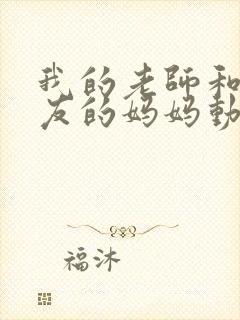 我的老師和
友的妈妈動
福沐